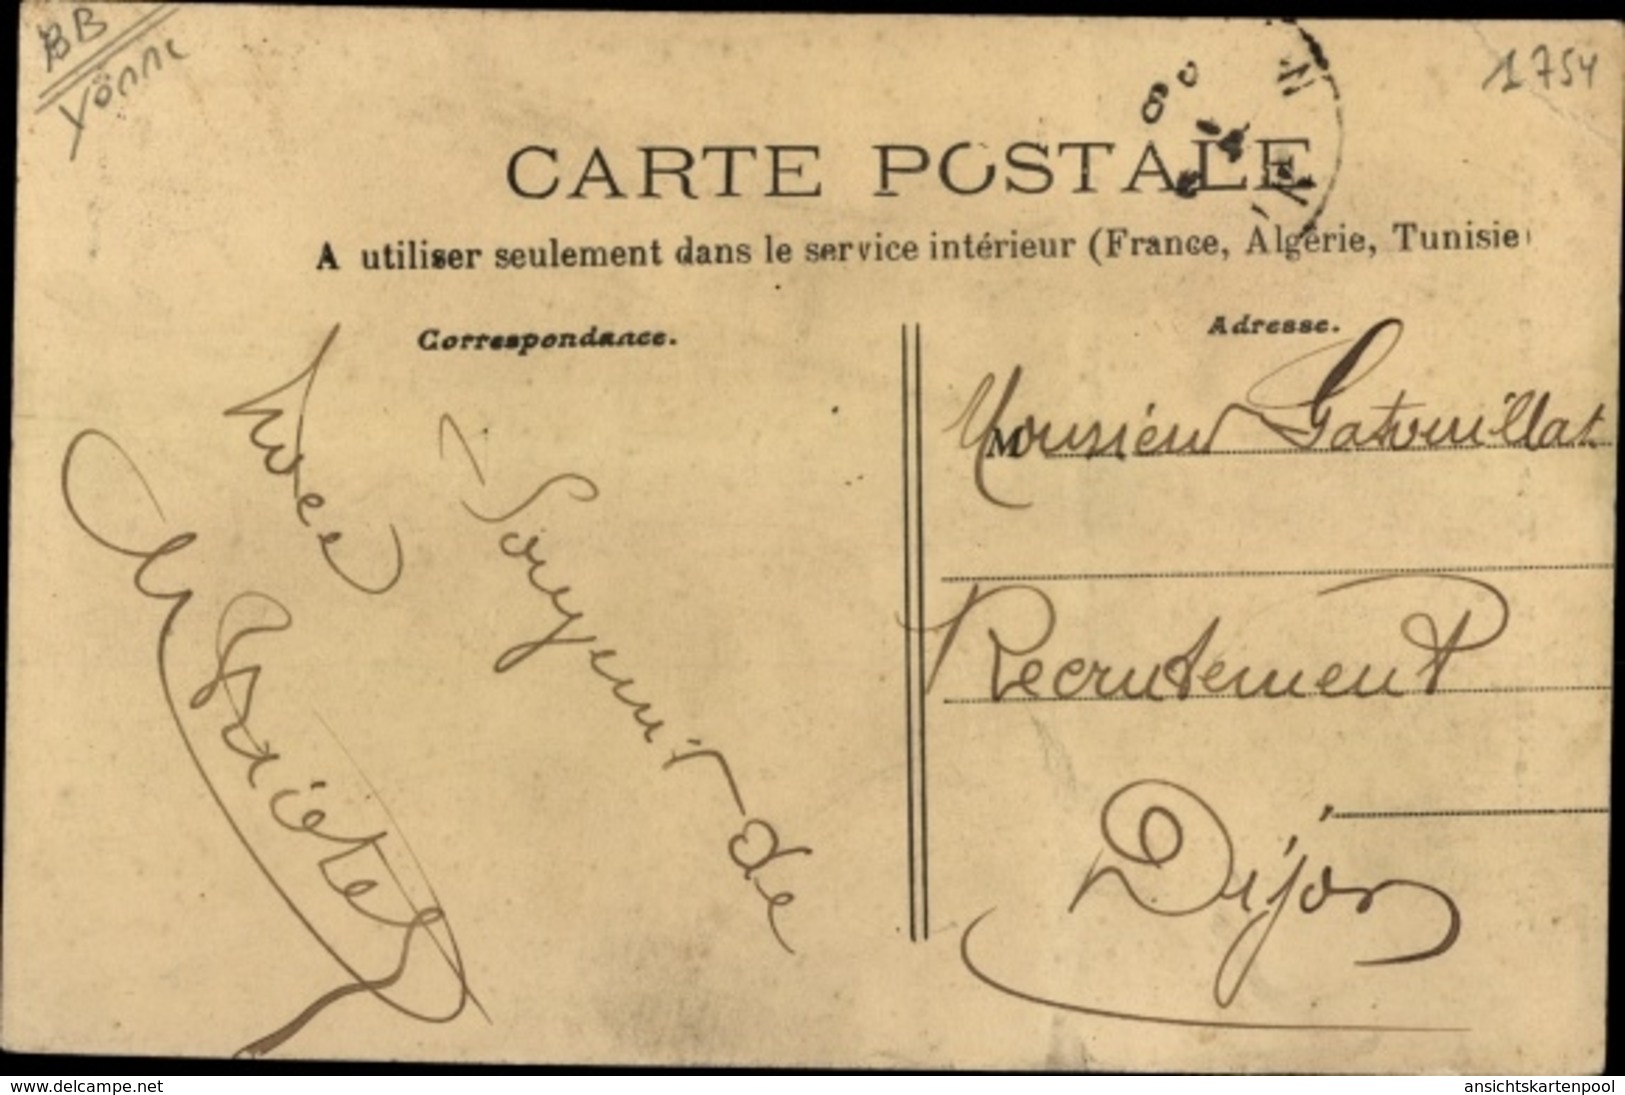 BB
Yonne
1754
CARTE POSTALE
A utiliser seulement dans le service intérieur (France, Algérie, Tunisie
Correspondance.
Adresse.
Souvenir de
M
Monsieur Gatouillat
Recrutement
Dijon
www.delcampe.net
ansichtskartenpool